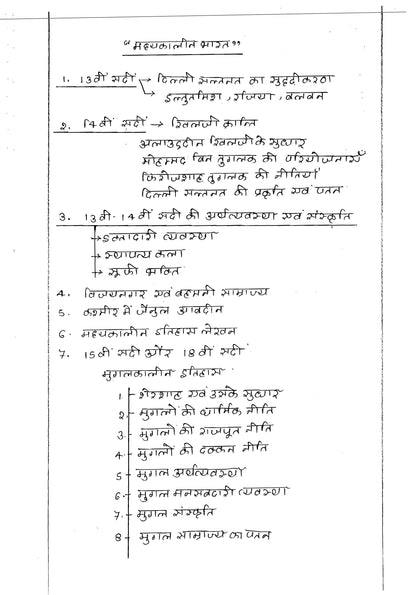 "मध्यकालीन भारत"
1. 13वीं सदी → दिल्ली सल्तनत का सुदृढीकरण
→ इल्तुतमिश, रजिया, बलबन
2. 14वीं सदी → खिलजी क्रांति
अलाउद्दीन खिलजी के सुधार
मोहम्मद बिन तुगलक की परियोजनाएँ
फिरोजशाह तुगलक की नीतियाँ
दिल्ली सल्तनत की प्रकृति एवं पतन
3. 13वीं-14वीं सदी की अर्थव्यवस्था एवं संस्कृति
→ इक्तादारी व्यवस्था
→ स्थापत्य कला
→ सूफी भक्ति
4. विजयनगर एवं बहमनी साम्राज्य
5. कश्मीर में जैनुल आबदीन
6. मध्यकालीन इतिहास लेखन
7. 15वीं सदी और 18वीं सदी
मुगलकालीन इतिहास
1 - शेरशाह एवं उसके सुधार
2 - मुगलों की धार्मिक नीति
3 - मुगलों की राजपूत नीति
4 - मुगलों की दक्कन नीति
5 - मुगल अर्थव्यवस्था
6 - मुगल मनसबदारी व्यवस्था
7 - मुगल संस्कृति
8 - मुगल साम्राज्य का पतन